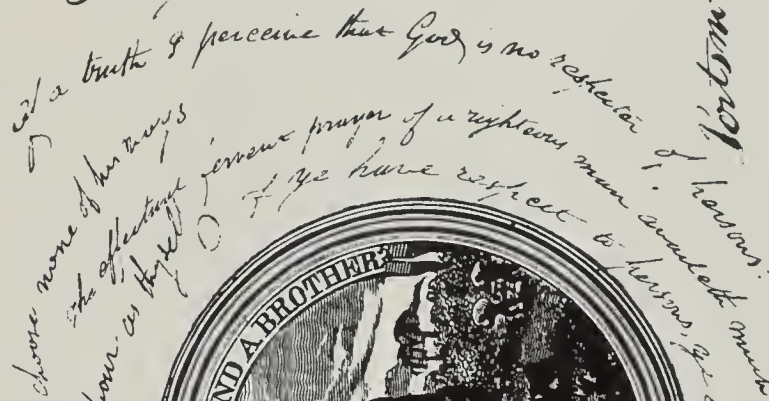 a truth I perceive that God is no respecter of persons.
choose none of his ways
the effectual fervent prayer of a righteous man availeth much
hour. as thyself
If ye have respect to persons, ye
ND A BROTHER?